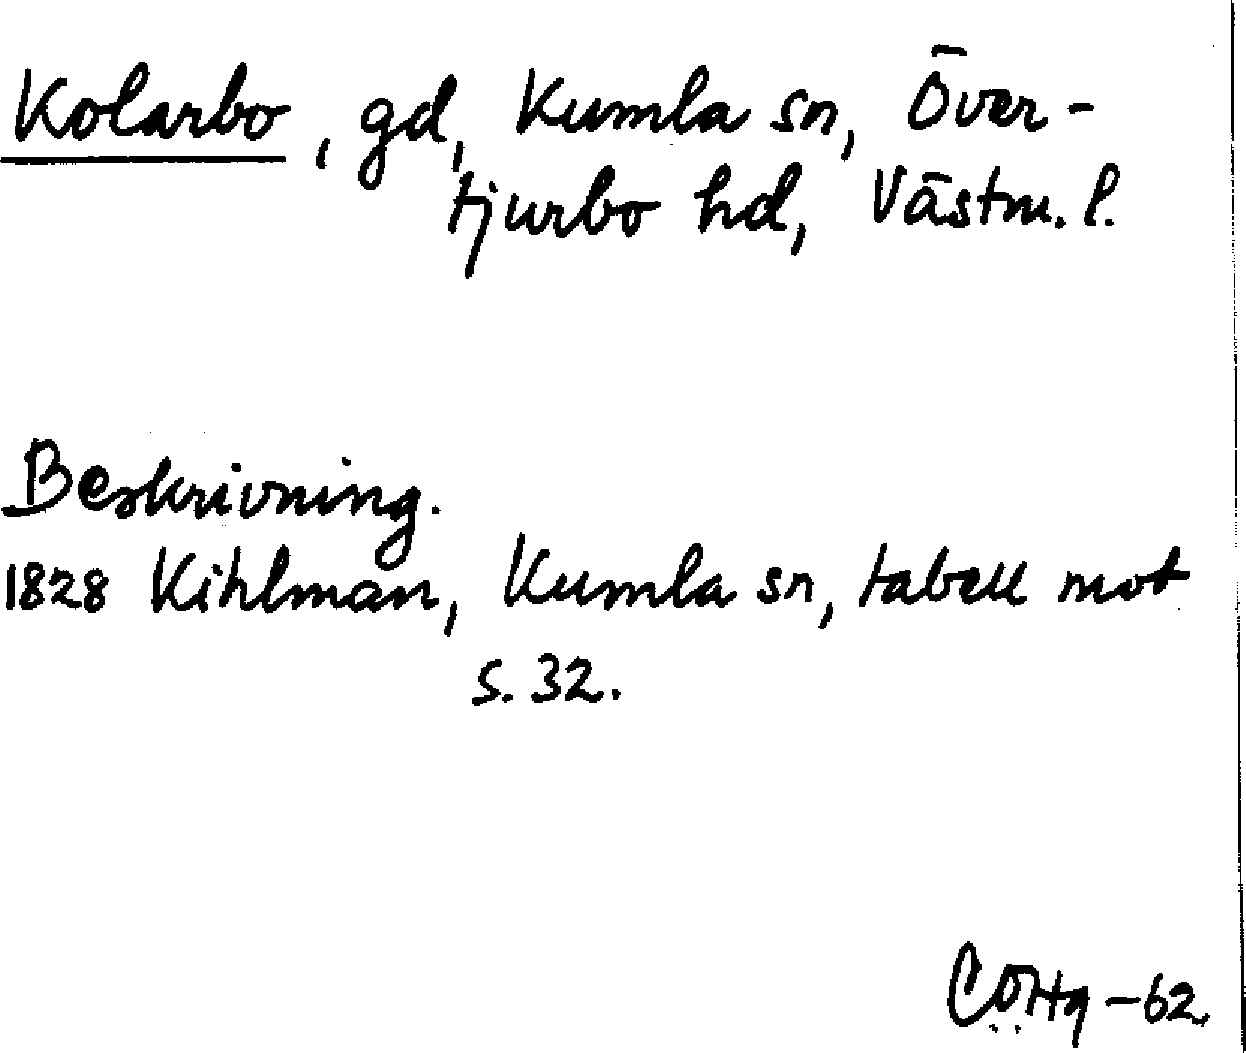 Kolarbo, gd, Kumla sn, Över-
tjurbo hd, Västm. l.
Beskrivning.
1828 Kihlman, Kumla sn, tabell mot
s. 32.
-62